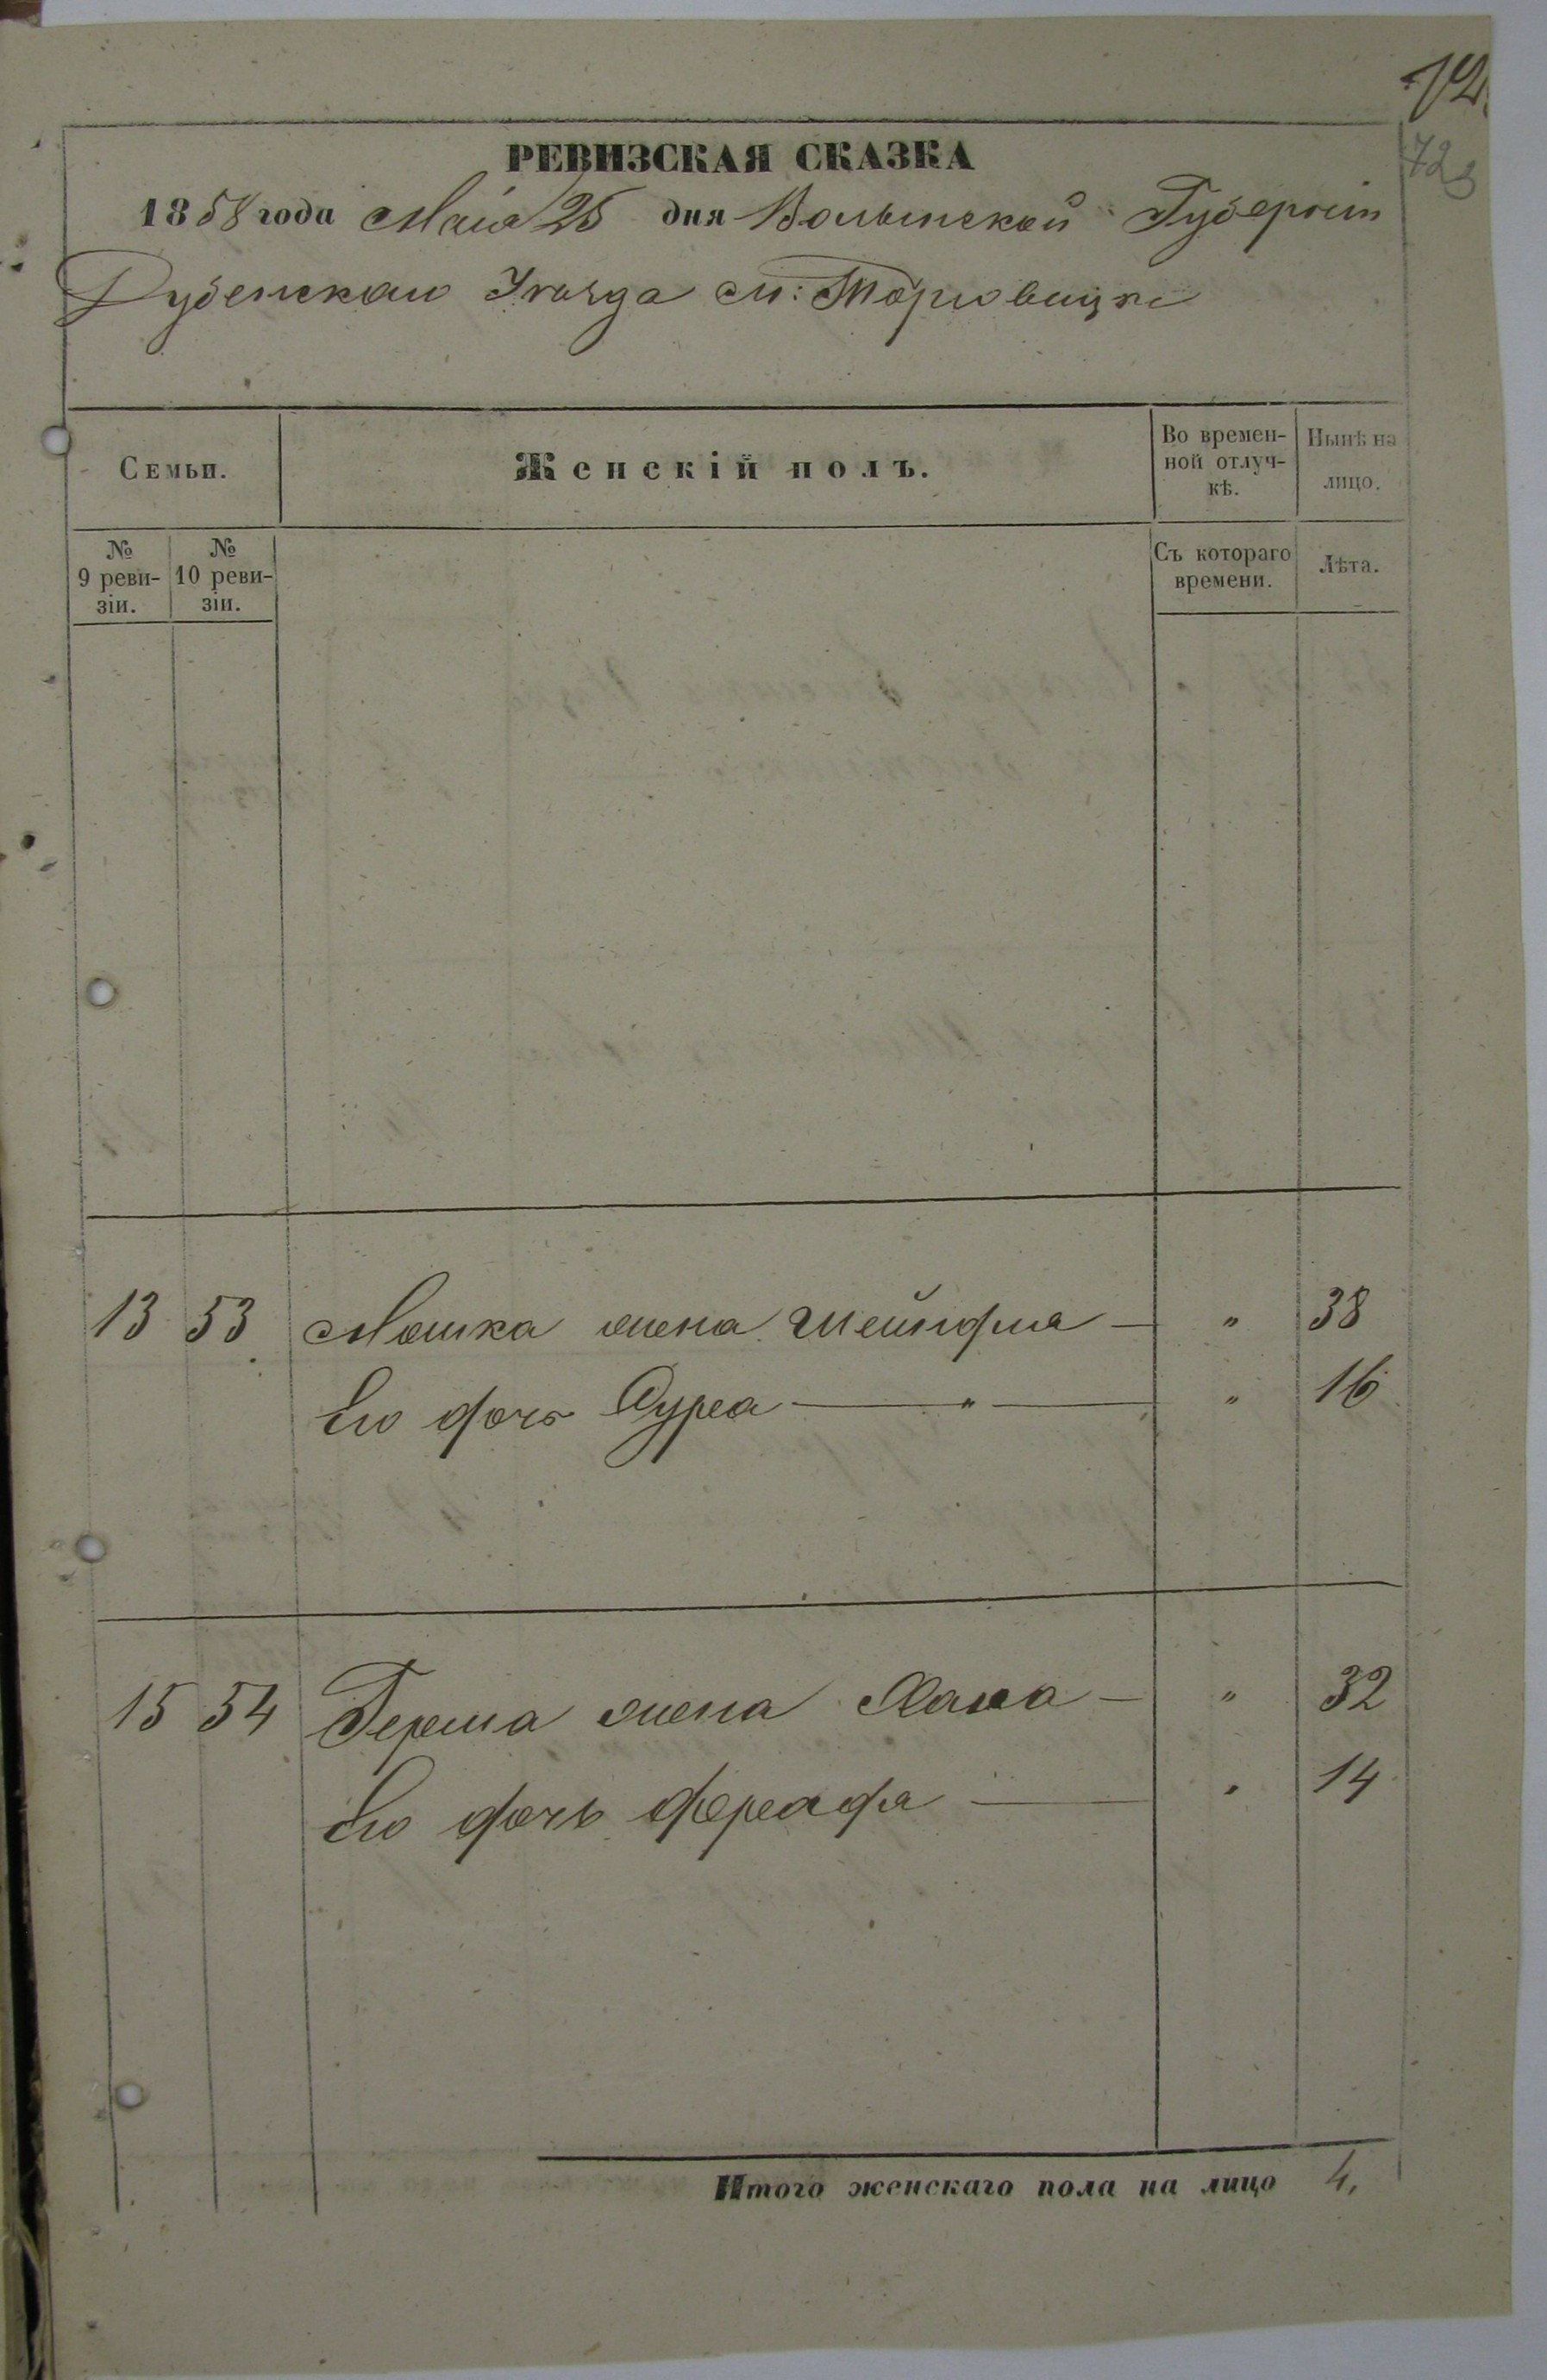 12.
72
РЕВИЗСКАЯ СКАЗКА
1858 года Маія 25 дня Волынской Губерніи
Дубенскаго Уѣзда м: Торговицы
Семьи.
Женскій полъ.
Во времен-
ной отлуч-
кѣ.
Нынѣ на
лицо.
№
9 реви-
зіи.
№
10 реви-
зіи.
Съ котораго
времени.
Лѣта.
13 53 Мошка жена Шейндля — " 38
Его дочь Сурса — " — " 16
15 54 Герша жена Хана — " 32
Его дочь — " 14
Итого женскаго пола на лицо 4.